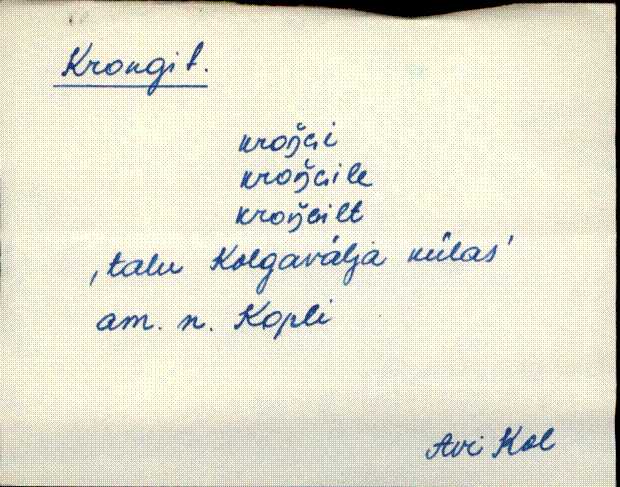 Krongi t.
kroŋ̆Gi
kroŋ̆Gile
kroŋ̆Gilt
‚talu Kolgavälja külas’
am. n. Kopli
Avi Kol